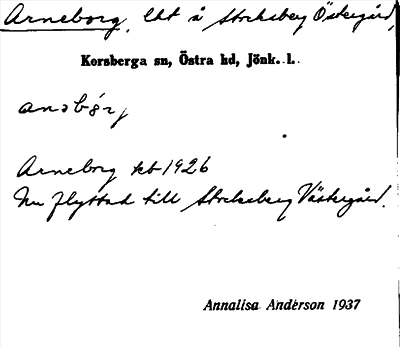 Arneborg, lht å Stocksberg Östergård,
Korsberga sn, Östra hd, Jönk. l.
Arneborg kb 1926
Nu flyttad till Stocksberg Västergård.
Annalisa Anderson 1937